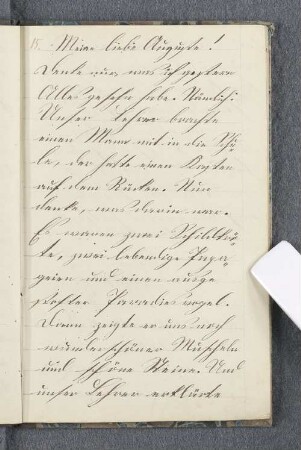 15. Meine liebe Auguste!
Denke nur was ich gestern
Alles gesehn habe. Nämlich:
Unser Lehrer brachte
einen Mann mit in die Schu
le, der hatte einen Kasten
auf dem Rücken. Nun
denke, was darin war.
Es waren zwei Schildkrö
te, zwei lebendige Papa
geien und einen ausge
stopfter Paradiesvogel.
Dann zeigte er uns noch
wunderschöne Muscheln
und schöne Steine. Und
unser Lehrer erklärte